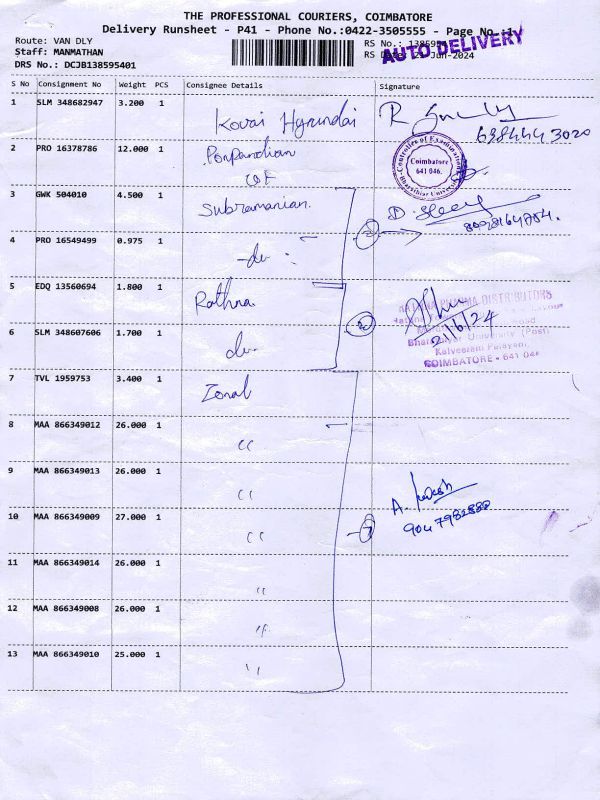 THE PROFESSIONAL COURIERS, COIMBATORE
Delivery Runsheet - P41 - Phone No.:0422-3505555 - Page No.:1
Route: VAN DLY
Staff: MANMATHAN
DRS No.: DCJB138595401
RS No.:
RS Date: Jun-2024
AUTO DELIVERY
S No Consignment No Weight PCS Consignee Details Signature
1 SLM 348682947 3.200 1 Kovai Hyundai
6384443020
2 PRO 16378786 12.000 1 Ponpandian
Controller of Examinations
Coimbatore
641 046.
Bharathiar University
3 GWK 504010 4.500 1 Subramanian.
4 PRO 16549499 0.975 1 -do-
5 EDQ 13560694 1.800 1 Rathna
RATHNA PHARMA DISTRIBUTORS
Road
Bharathiyar University (Post)
Kalveeram Palayam,
COIMBATORE - 641 046
21/6/24
6 SLM 348607606 1.700 1 do-
7 TVL 1959753 3.400 1 Zonal
8 MAA 866349012 26.000 1 "
9 MAA 866349013 26.000 1 "
A. Prakash
10 MAA 866349009 27.000 1 "
7
11 MAA 866349014 26.000 1 "
12 MAA 866349008 26.000 1 "
13 MAA 866349010 25.000 1 "